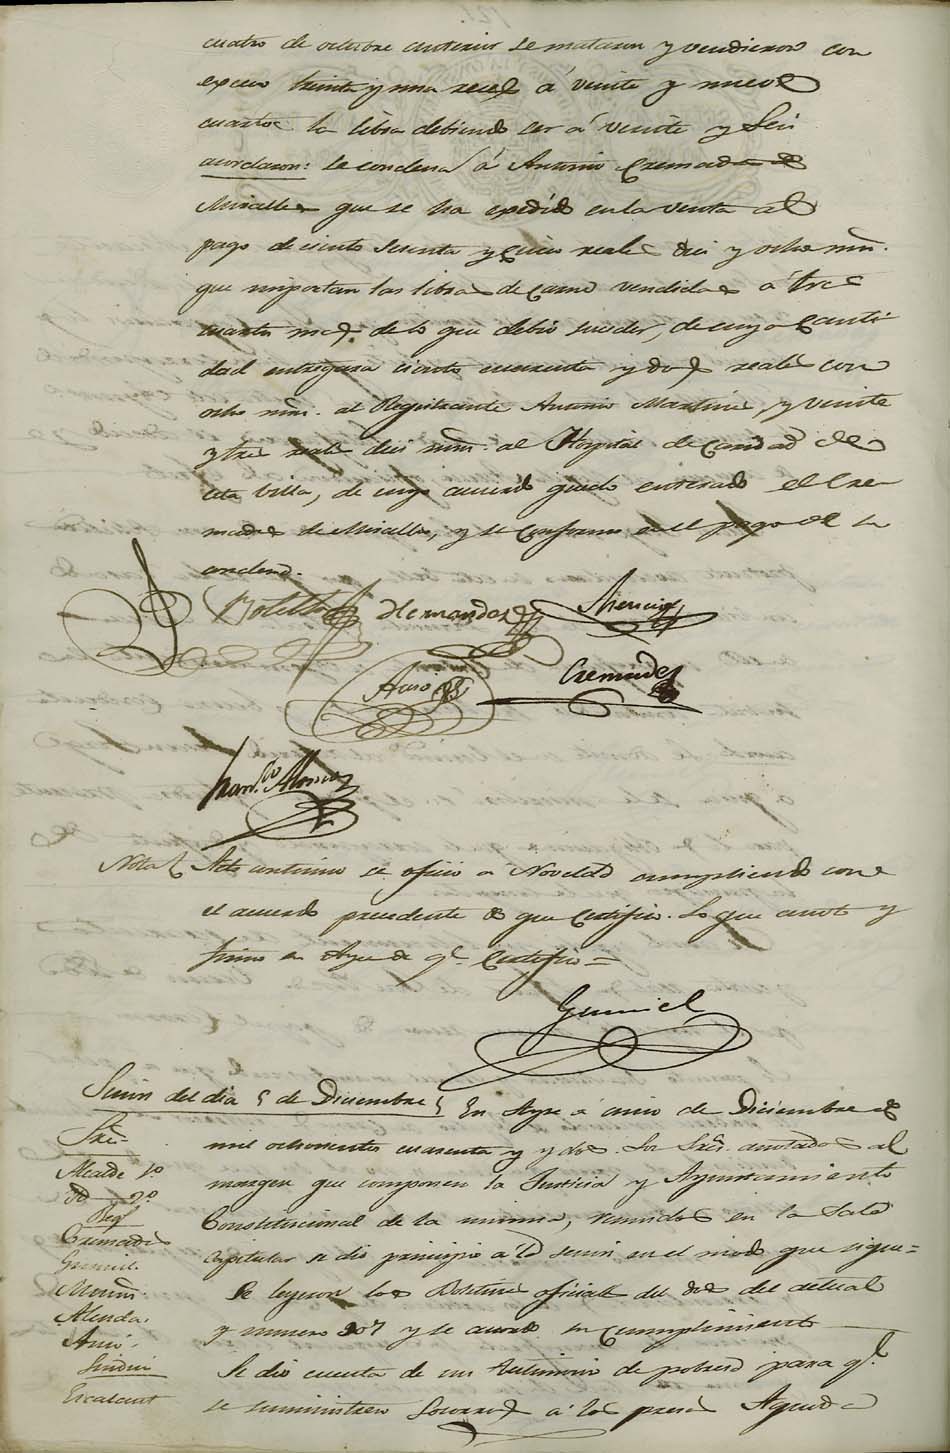 cuatro de octubre anterior se mataron y vendieron con
exceso treinta y una reces á veinte y nueve
cuartos la libra debiendo ser á veinte y seis
acordaron: se condena á Antonio Cremades de
Miralles que se ha espedido en la venta al
pago de ciento sesenta y cinco reales diez y ocho mrs.
que importan las libras de carne vendidas á tres
cuartos mas de lo que debió suceder, de cuya canti
dad entregara ciento cuarenta y dos reales con
ocho mrs. al Registrante Antonio Martinez, y veinte
y tres reales diez mrs. al Hospital de Caridad de
esta Villa, de cuyo acuerdo quedó enterado el Cre
mades de Miralles, y se conformó en el pago de la
condena.
Botella Hernandez Asencio
Aznar Cremades
Franco. Alonso
Nota Acto continuo se ofició á Novelda cumpliendo con
el acuerdo precedente de que certifico. Lo que anoto y
firmo en Aspe de qe. Certifico =
Gumiel
Sesion del dia 5 de Diciembre En Aspe á cinco de Diciembre de
Sres.
mil ochocientos cuarenta y y dos. Los Sres. anotados al
Alcalde 1º
margen que componen la Justicia y Ayuntamiento
Id 2º
Regs
Constitucional de la misma, reunidos en la Sala
Cremades
capitular se dió principio a la sesion en el modo que sigue =
Gumiel.
Se leyeron los Boletines oficiales del dos del actual
Alenda.
y numero 307 y se acordó su cumplimiento
Sindico
Se dió cuenta de un testimonio de pobreza para qe.
Escalant
se suministren socorros á los presos Agueda